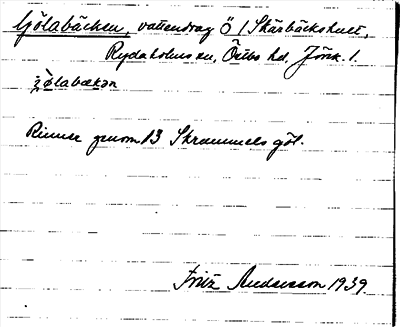 Gölabäcken, vattendrag Ö / Skärbäckshult,
Rydaholms sn, Östbo hd, Jönk. l.
jølabækən
Rinner genom 13 Skrammels göl.
Fritz Andersson 1939.